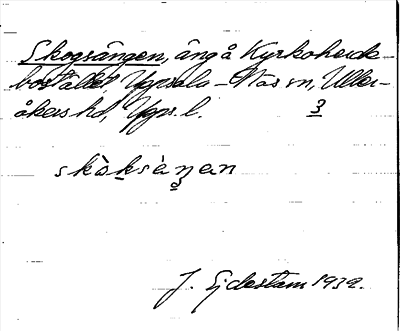 Skogsängen, äng å Kyrkoherde-
bostället, Uppsala-Näs sn, Uller-
åkers hd, Upps. l. 3
skòksäŋan
J. Ejdestam 1939.